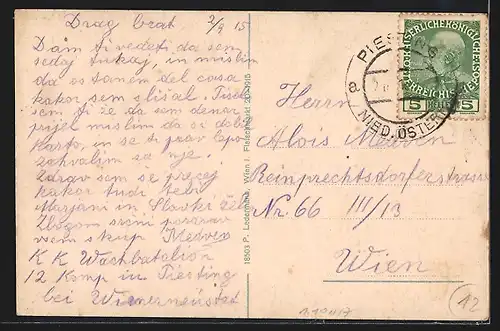 Drag brat 2/9 15
Dam ti vedeti da sem
sedaj tukaj, in mislim
da os tanem del casa
kakor sem slišal.
sem ti že da sem denar
prijel mislim da si dobil
karto, in se ti prav lepo
zahvalim za nje.
Zdrav sem se precej
kakor tudi tebi
Marjani in Slavki želim
Zbogom srčni pozdrav
vsem skup Medved
K K Wachbatalion
12 Komp in Piesting
bei Wienerneustadt
18503 P. Ledermann, Wien I. Fleischmarkt 20 1915
PIESTING
a
NIED. ÖSTERR
KAISERLICHE KÖNIGLICHE
ÖSTERREICHISCHE
5 HELLER 5
Herrn
Alois
Reinprechtsdorferstrasse
Nr. 66 III/13
Wien
12